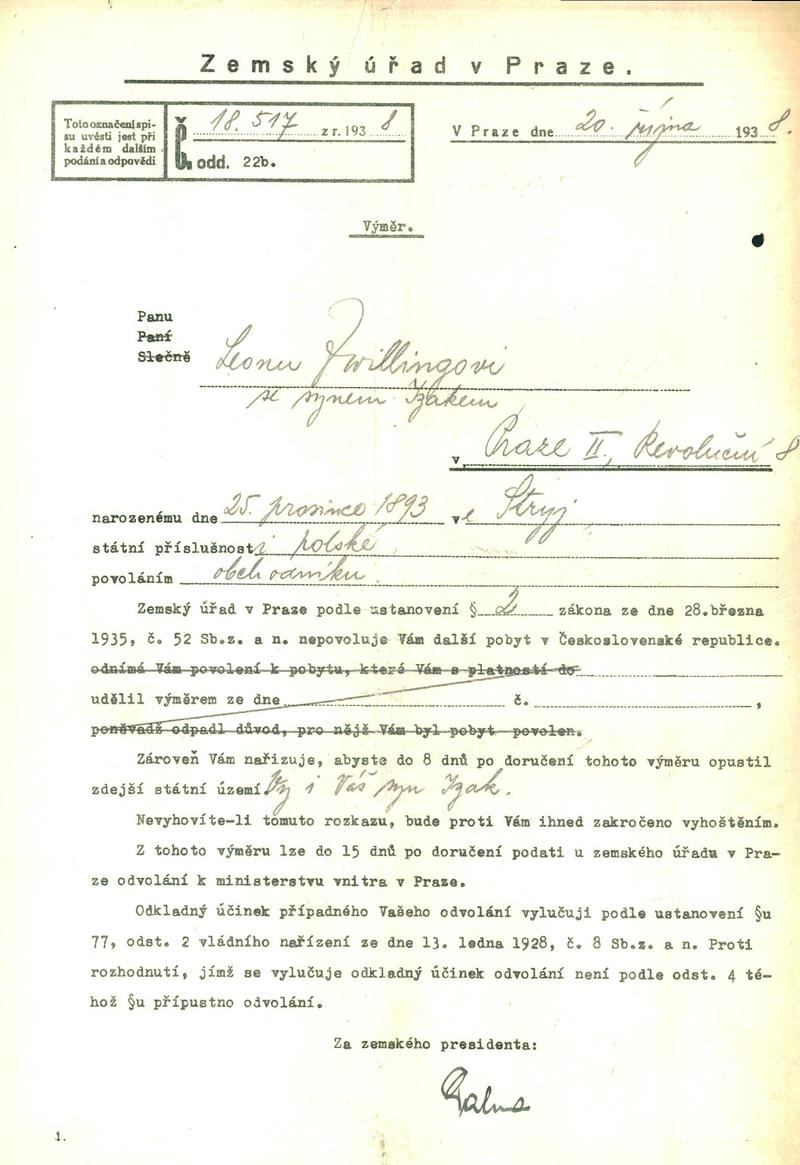 Zemský úřad v Praze.
Toto označení spi-
su uvésti jest při
každém dalším
podání a odpovědi
Č. 18.517 z r. 1938
odd. 22b.
V Praze dne 20. října 1938.
Výměr.
Panu
Paní
Slečně
Leonu Zwillingovi
se synem Izakem
v Praze II., Revoluční 8
narozenému dne 25. prosince 1893 ve Stryj,
státní příslušnosti polské,
povoláním obchodníku.
Zemský úřad v Praze podle ustanovení § 2 zákona ze dne 28.března
1935, č. 52 Sb.z. a n. nepovoluje Vám další pobyt v Československé republice.
odnímá Vám povolení k pobytu, které Vám s platností do
udělil výměrem ze dne č. ,
poněvadž odpadl důvod, pro nějž Vám byl pobyt povolen.
Zároveň Vám nařizuje, abyste do 8 dnů po doručení tohoto výměru opustil
zdejší státní území Vy i Váš syn Izak.
Nevyhovíte-li tomuto rozkazu, bude proti Vám ihned zakročeno vyhoštěním.
Z tohoto výměru lze do 15 dnů po doručení podati u zemského úřadu v Pra-
ze odvolání k ministerstvu vnitra v Praze.
Odkladný účinek případného Vašeho odvolání vylučuji podle ustanovení §u
77, odst. 2 vládního nařízení ze dne 13. ledna 1928, č. 8 Sb.z. a n. Proti
rozhodnutí, jímž se vylučuje odkladný účinek odvolání není podle odst. 4 té-
hož §u přípustno odvolání.
Za zemského presidenta:
1.